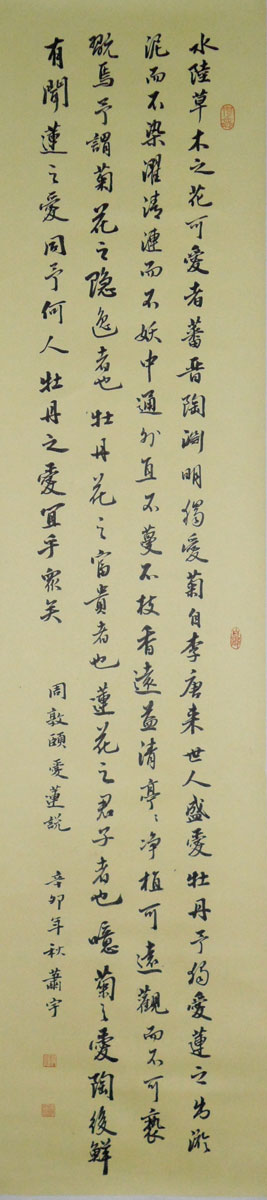 水陸草木之花可愛者蕃晋陶渊明獨愛菊自李唐来世人盛愛牡丹予獨愛蓮之出淤
泥而不染濯清漣而不妖中通外直不蔓不枝香遠益清亭〻净植可遠觀而不可褻
翫焉予謂菊花之隐逸者也牡丹花之富貴者也蓮花之君子者也噫菊之愛陶後鮮
有聞蓮之愛同予何人牡丹之愛宜乎衆矣
周敦頤愛蓮説
辛卯年秋蕭宇